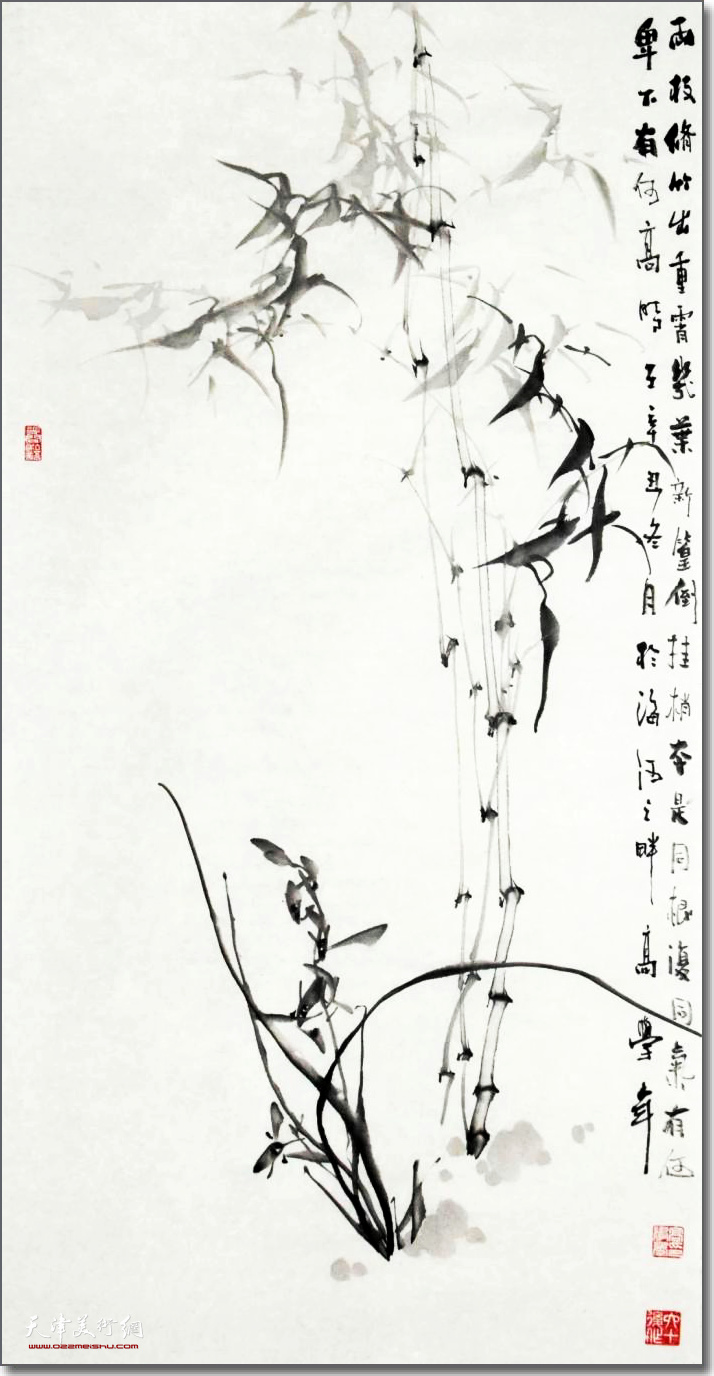 兩枝脩竹出重霄幾葉新篁倒挂梢本是同根復同氣有何
卑下有何高時辛丑冬月於海河之畔高學年
天津美術網
www.022meishu.com